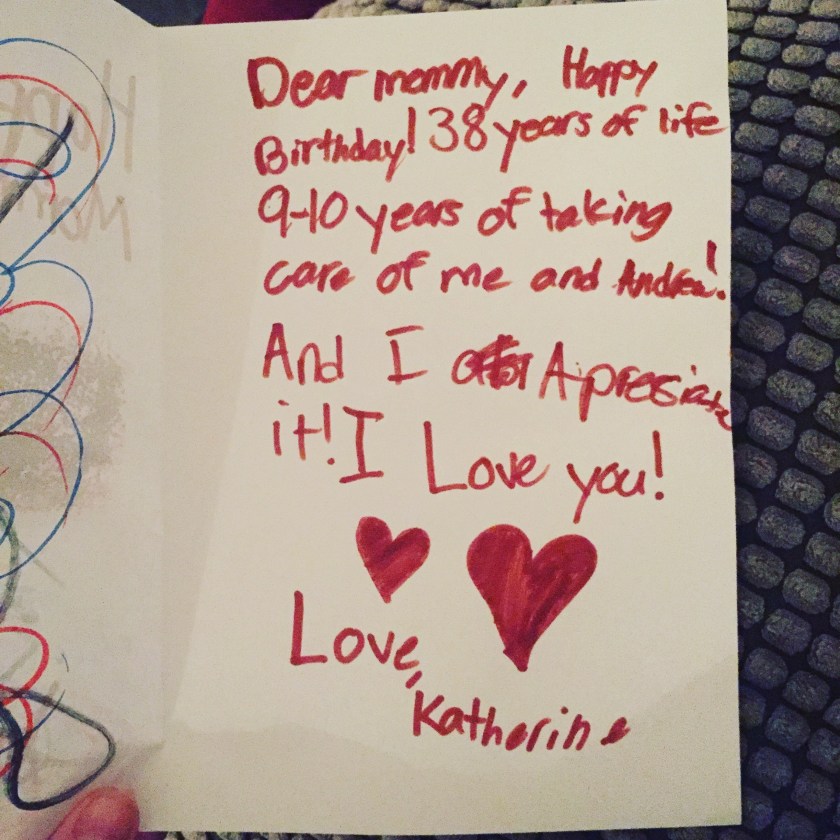 Dear mommy, Happy
Birthday! 38 years of life
9-10 years of taking
care of me and Andrew!
And I Apresiate
it! I Love you!
Love,
Katherine